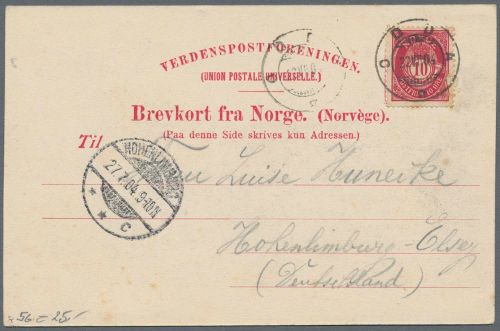 VERDENSPOSTFORENINGEN.
(UNION POSTALE UNIVERSELLE.)
ODDA
10
Brevkort fra Norge. (Norvège).
(Paa denne Side skrives kun Adressen.)
Til
HOHENLIMBURG
27.7.04.9-10V.
* * C
Frau Luise Hunecke
Hohenlimburg-Elsey
(Deutschland)
56 = 25,-